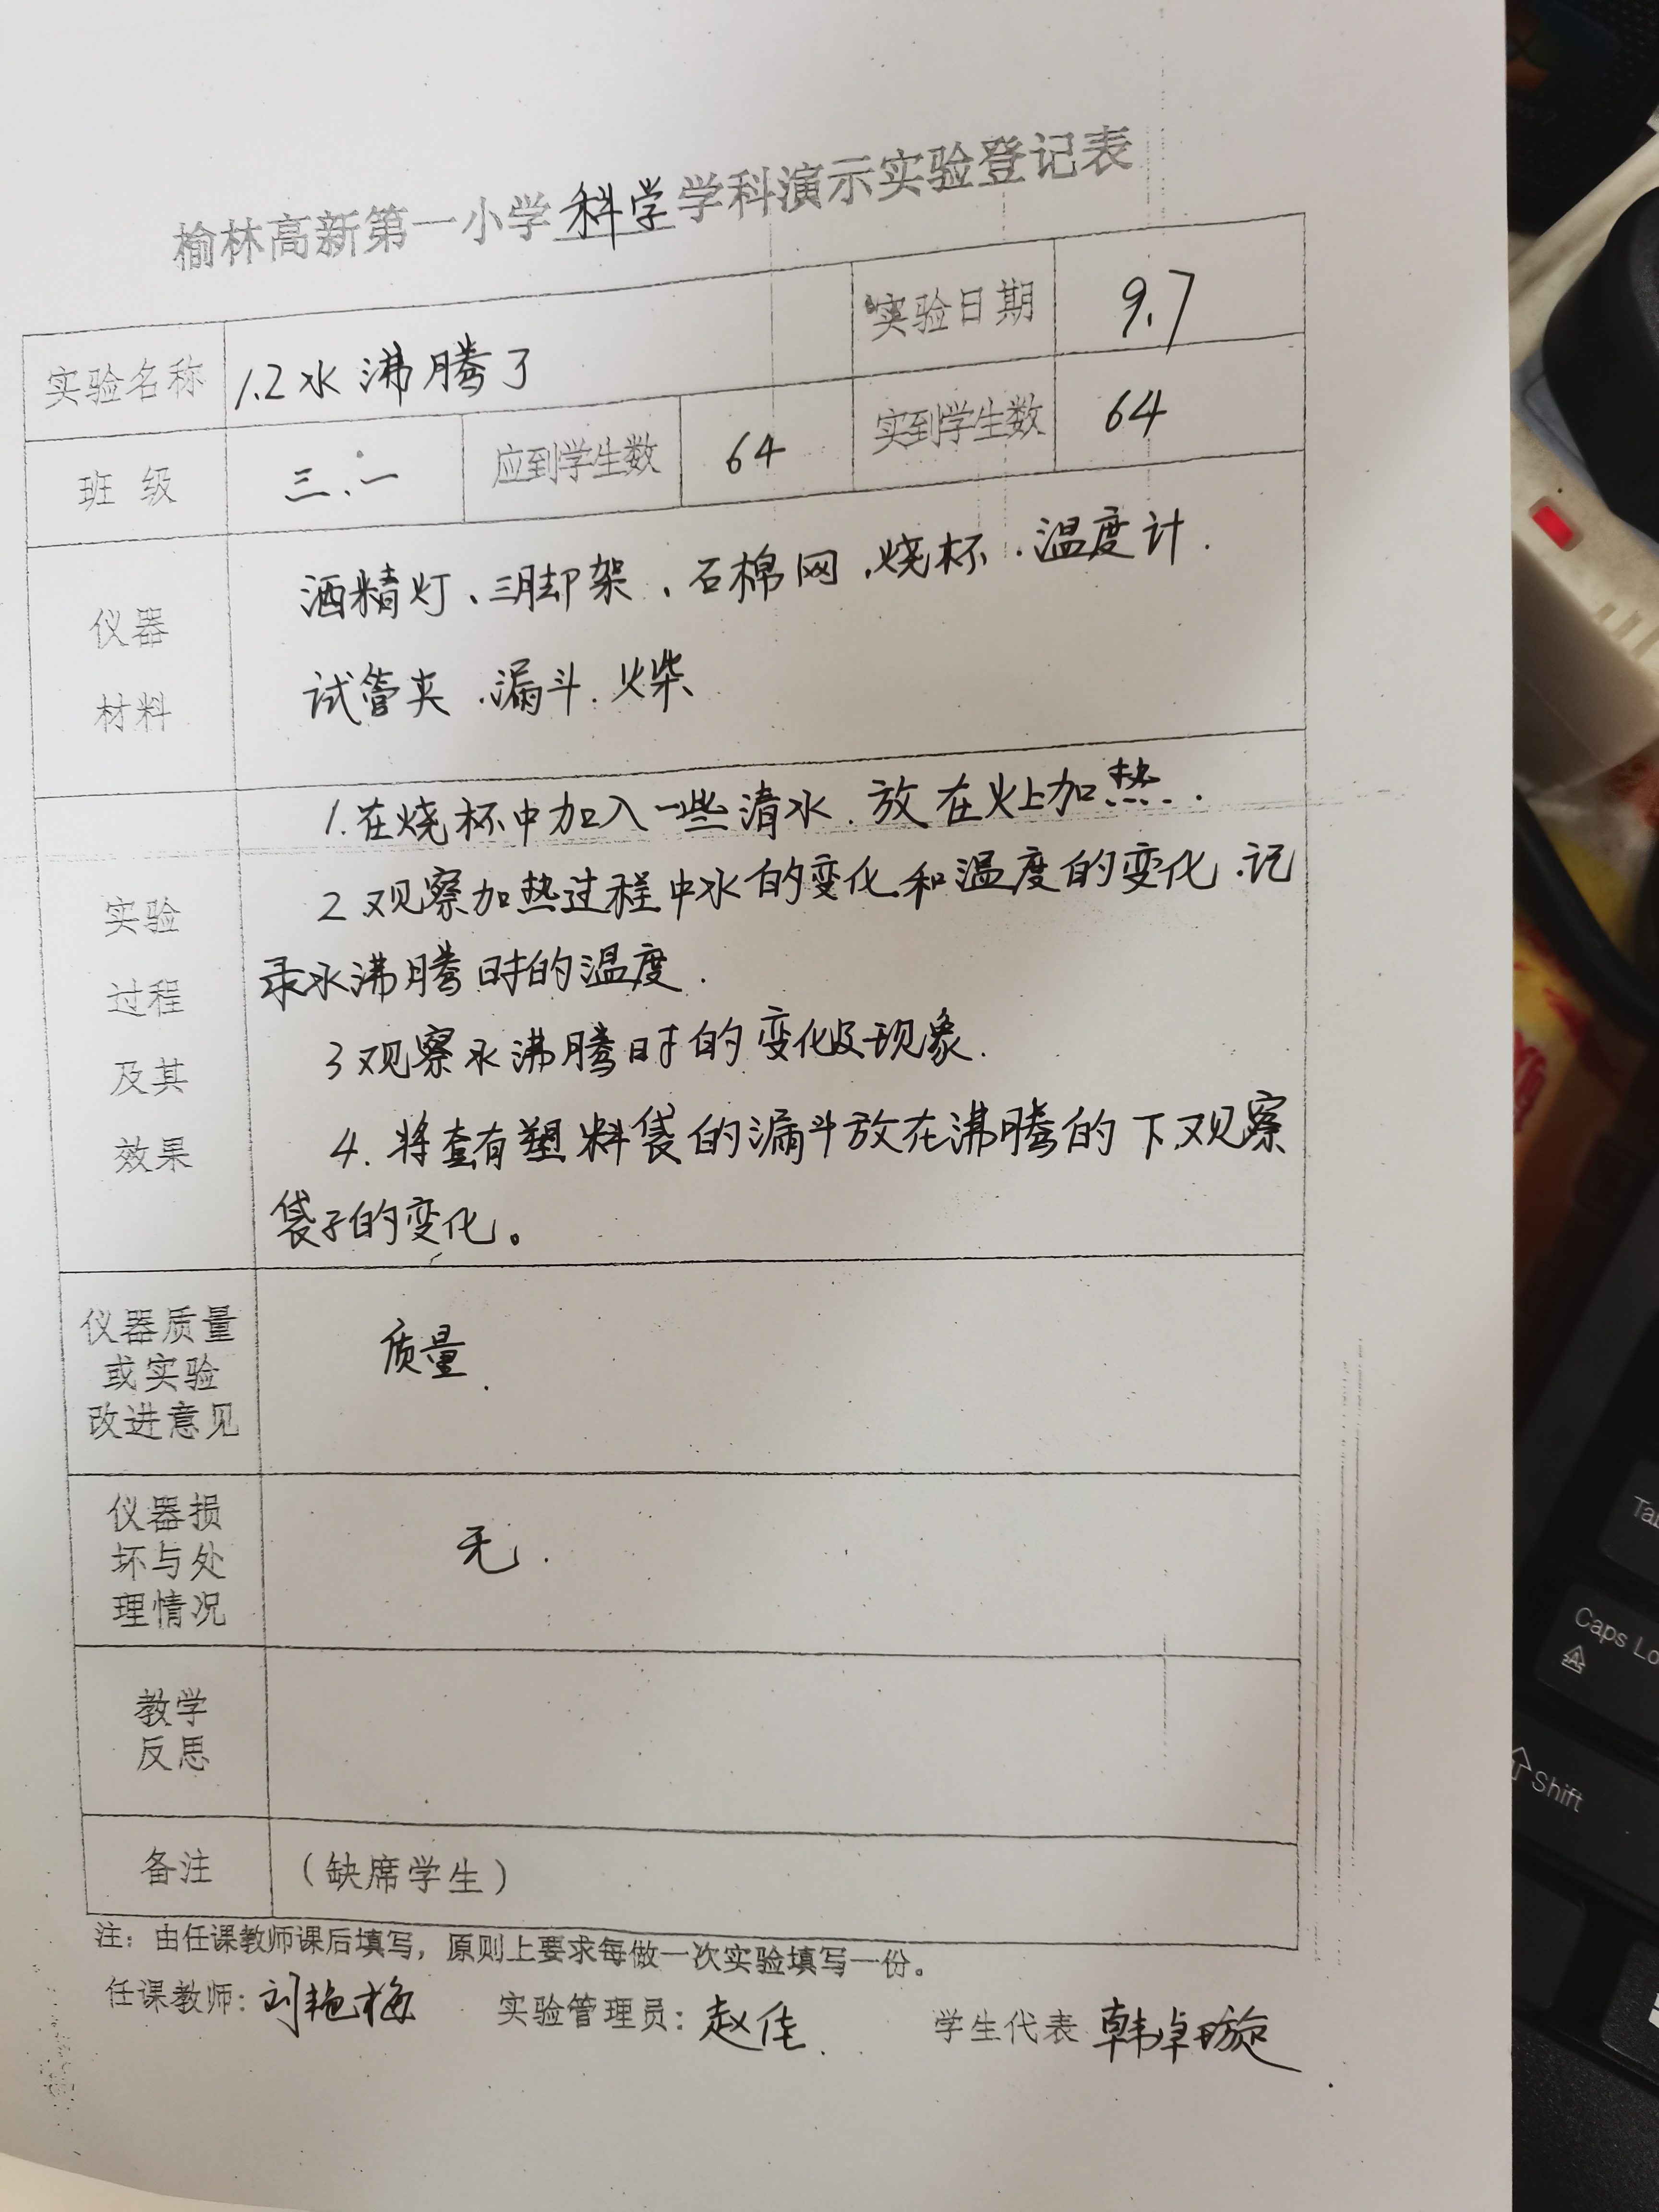 榆林高新第一小学科学学科演示实验登记表
实验名称 1.2水沸腾了 实验日期 9.7
班 级 三.一 应到学生数 64 实到学生数 64
仪器
材料
酒精灯、三脚架、石棉网、烧杯.温度计.
试管夹.漏斗.火柴、
实验
过程
及其
效果
1.在烧杯中加入一些清水.放在火上加热.
2 观察加热过程中水的变化和温度的变化.记
录水沸腾时的温度.
3 观察水沸腾时的变化及现象.
4.将套有塑料袋的漏斗放在沸腾的下,观察
袋子的变化。
仪器质量
或实验
改进意见
质量.
仪器损
坏与处
理情况
无.
教学
反思
备注 （缺席学生）
注：由任课教师课后填写，原则上要求每做一次实验填写一份。
任课教师：刘艳梅 实验管理员：赵佳. 学生代表 韩卓璇
Caps Lo
Shift
Ta